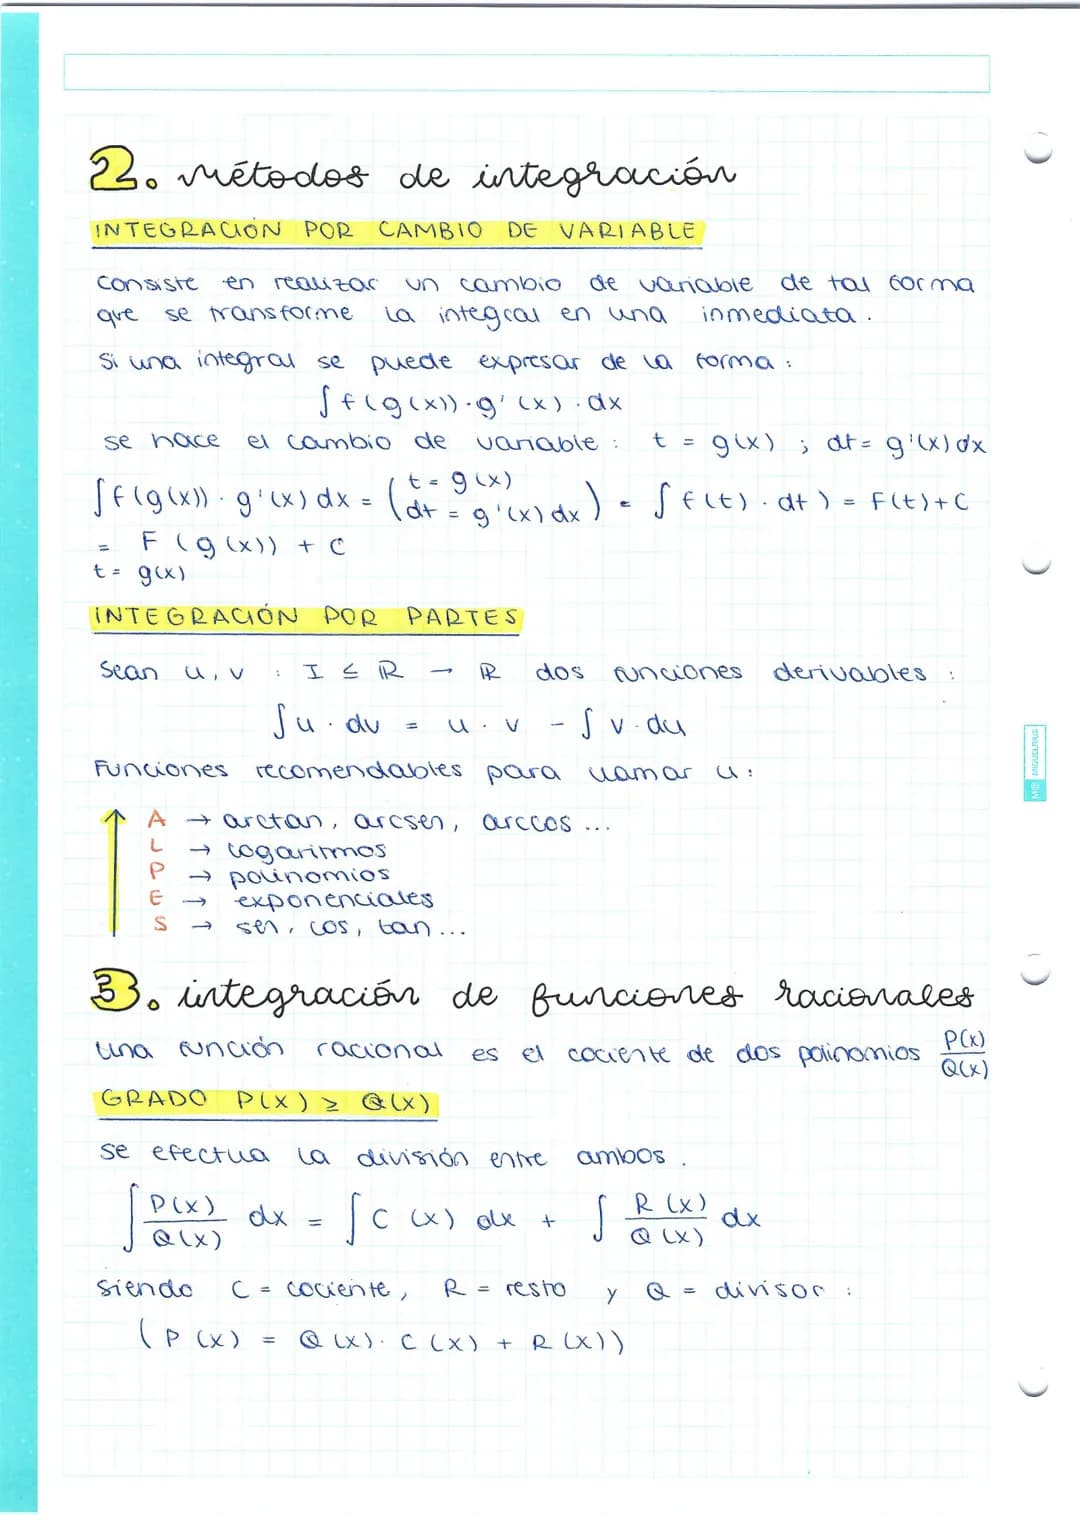 2. Métodos de integración
INTEGRACIÓN POR CAMBIO DE VARIABLE
Consiste en realizar un cambio de variable de tal forma
que se transforme la integral en una inmediata.
Si una integral se puede expresar de la forma:
∫ f(g(x)) · g'(x) · dx
se hace el cambio de variable: t = g(x) ; dt = g'(x) dx
∫ f(g(x)) · g'(x) dx = ( t = g(x) dt = g'(x) dx ) = ∫ f(t) · dt ) = F(t) + C
= F (g(x)) + C
t = g(x)
INTEGRACIÓN POR PARTES
Sean u, v : I ≤ ℝ → ℝ dos funciones derivables :
∫ u · dv = u · v - ∫ v · du
Funciones recomendables para llamar u:
A → arctan, arcsen, arccos ...
L → logaritmos
P → polinomios
E → exponenciales
S → sen, cos, tan...
3. integración de funciones racionales
Una función racional es el cociente de dos polinomios P(x)/Q(x)
GRADO P(X) ≥ Q(X)
Se efectua la división entre ambos.
∫ P(x)/Q(x) dx = ∫ C (x) dx + ∫ R (x)/Q (x) dx
siendo C = cociente, R = resto y Q = divisor :
(P (x) = Q (x) · C (x) + R (x))
MIQUELRIUS